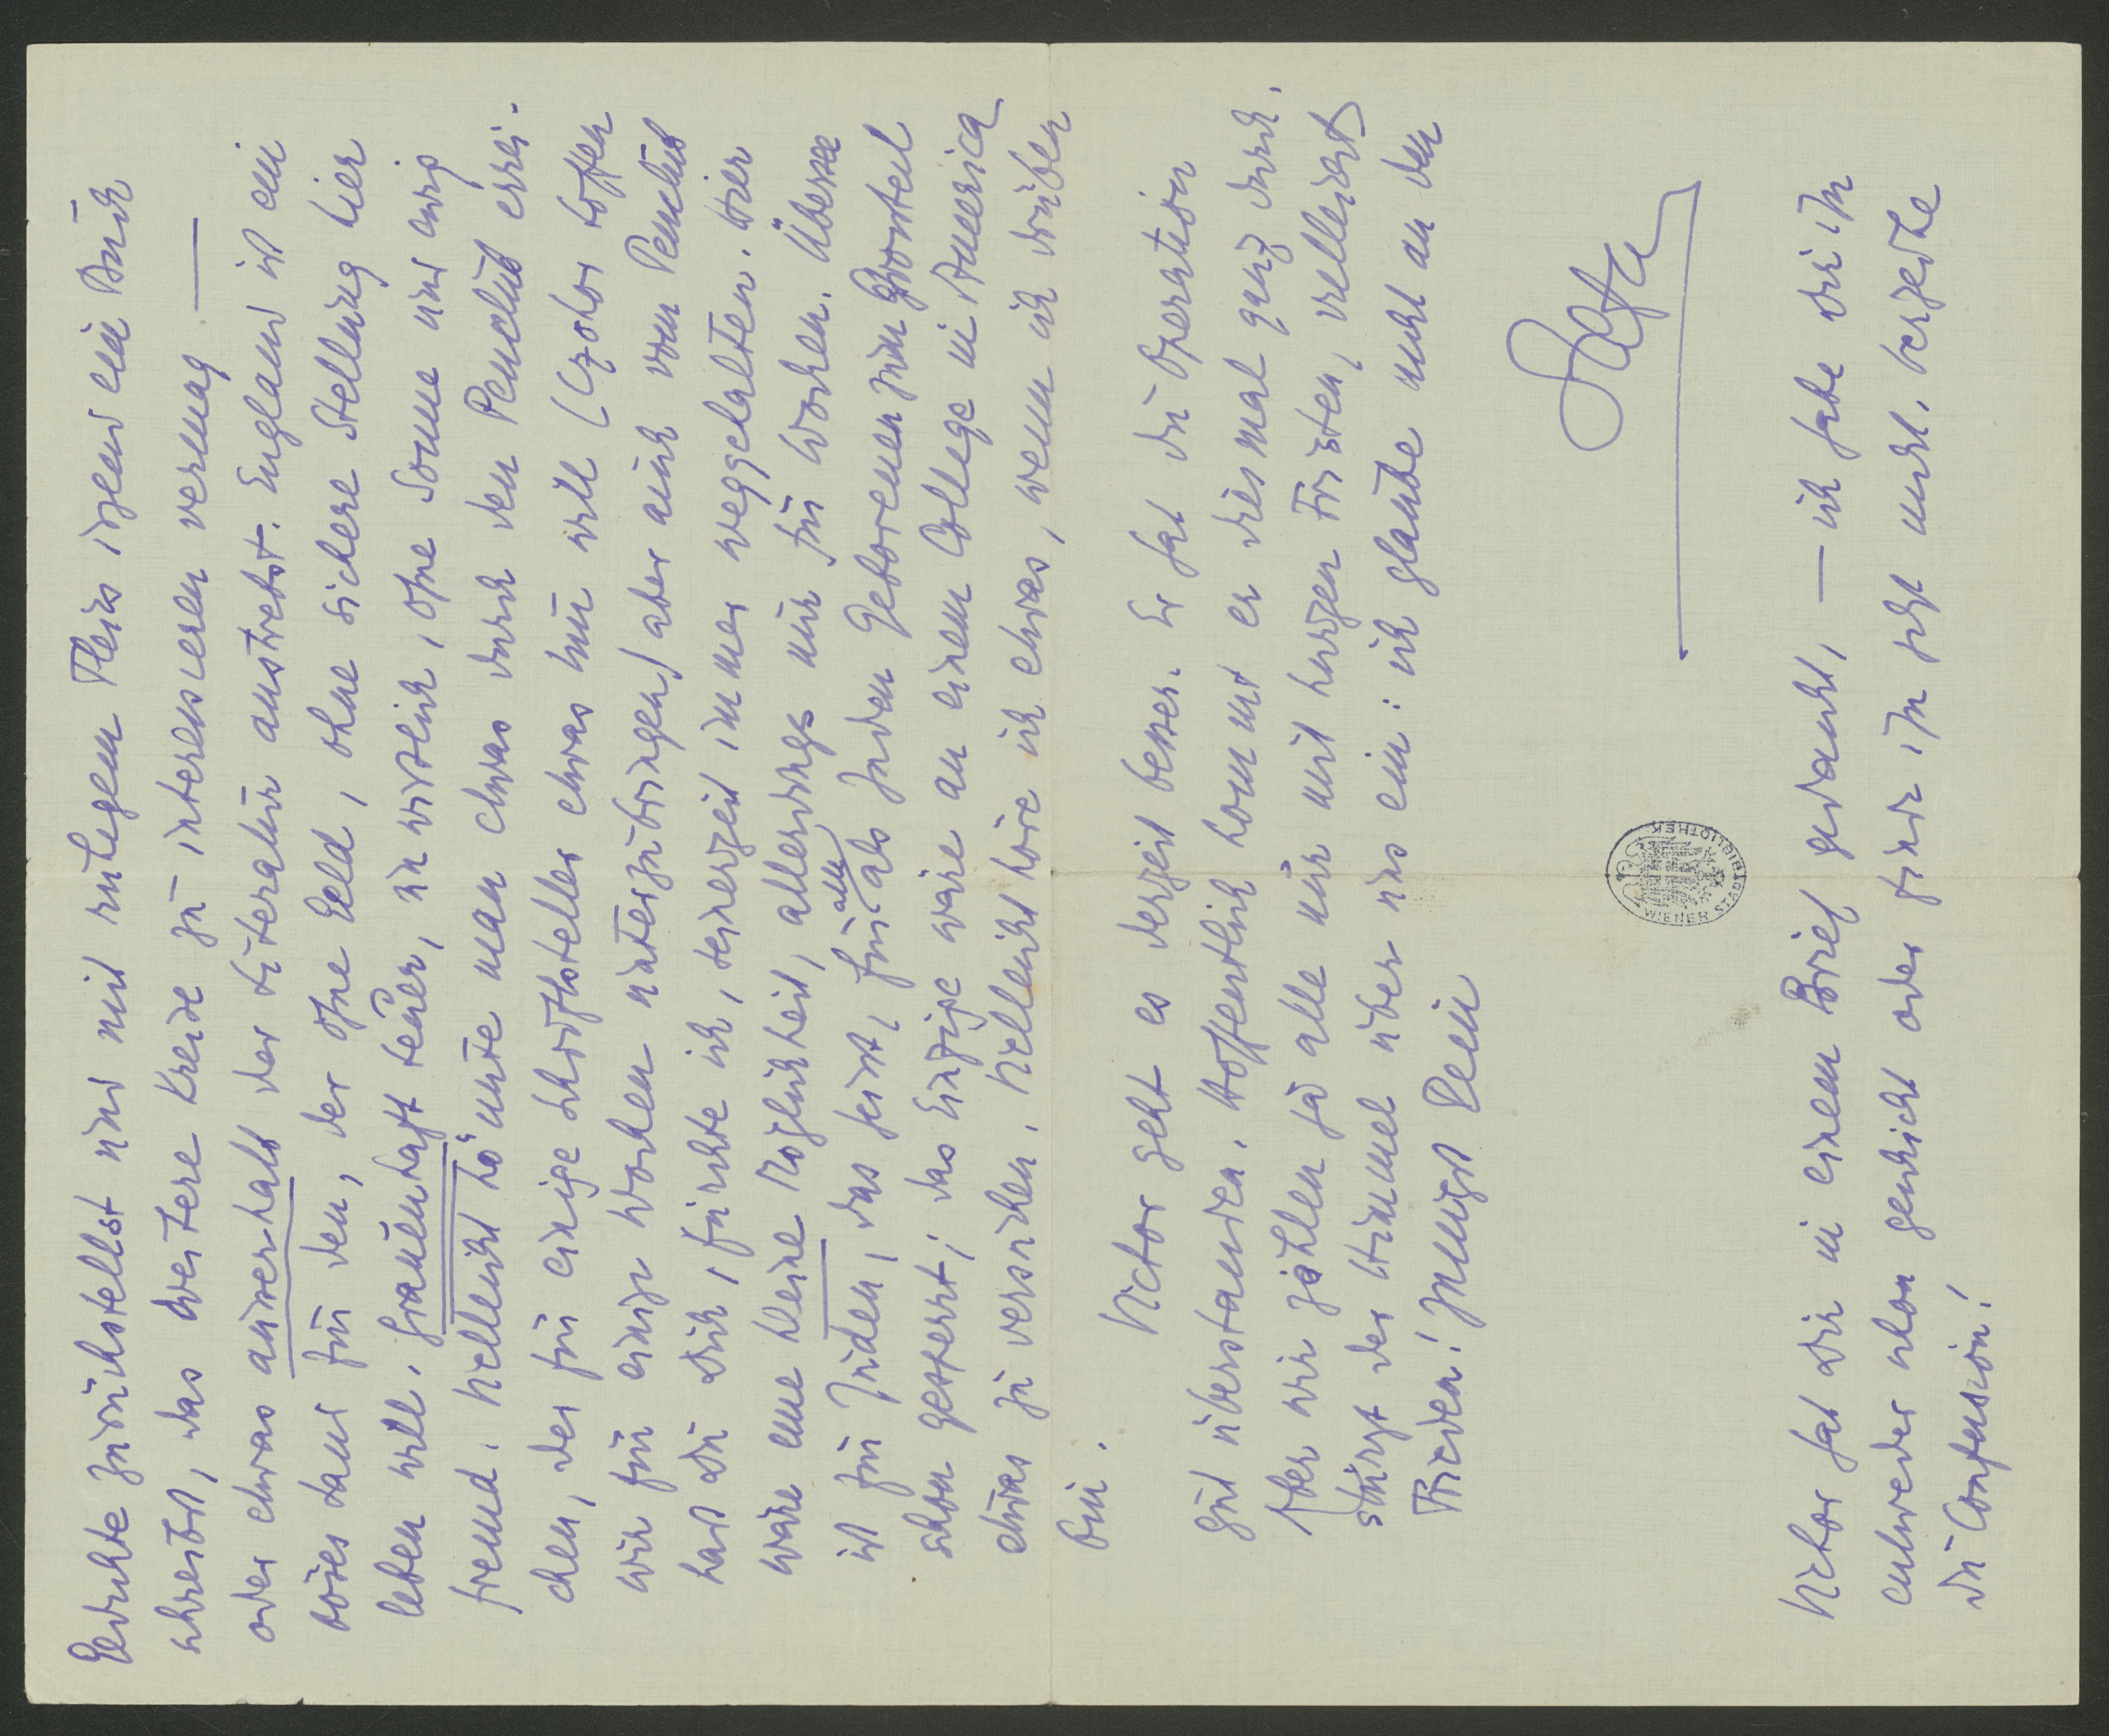 Gedichte zurückstellst und mit ruhigem Fleiss irgend ein Buch
schreibst, das weitere Kreise zu interessieren vermag —
oder etwas ausserhalb der Literatur anstrebst. England ist ein
böses Land für den, der ohne Geld, ohne sichere Stellung hier
leben will. Grauenhaft teuer, unwirtlich, ohne Sonne und ewig
fremd. Vielleicht könnte man etwas durch den Penclub errei-
chen, der für einige Schriftsteller etwas tun will (Czokor hoffen
wir für einige Wochen unterzubringen) aber auch vom Penclub
hast Du Dich, fürchte ich, seinerzeit immer weggehalten. Hier
wäre eine kleine Möglichkeit, allerdings nur für Wochen. Übersee
ist für Juden, das heisst, für alle als Juden Geborenen zum Grossteil
schon gesperrt; das Einzige wäre an einem College in America
etwas zu versuchen. Vielleicht höre ich etwas, wenn ich drüben
bin.
Victor geht es derzeit besser. Er hat die Operation
gut überstanden. Hoffentlich kommt er diesmal ganz durch.
Aber wir zählen ja alle nur mit kurzen Fristen, vielleicht
stürzt der Himmel über uns ein: ich glaube nicht an den
Frieden! Innigst Dein
Stefan
WIENER STADTBIBLIOTHEK
Victor hat Dir in einem Brief gedankt, — ich habe Dir ihn
entweder schon geschickt oder finde ihn jetzt nicht. Verzeihe
die Confusion!